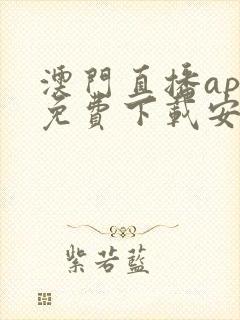 澳門直播ap
免費下載安
紫若藍